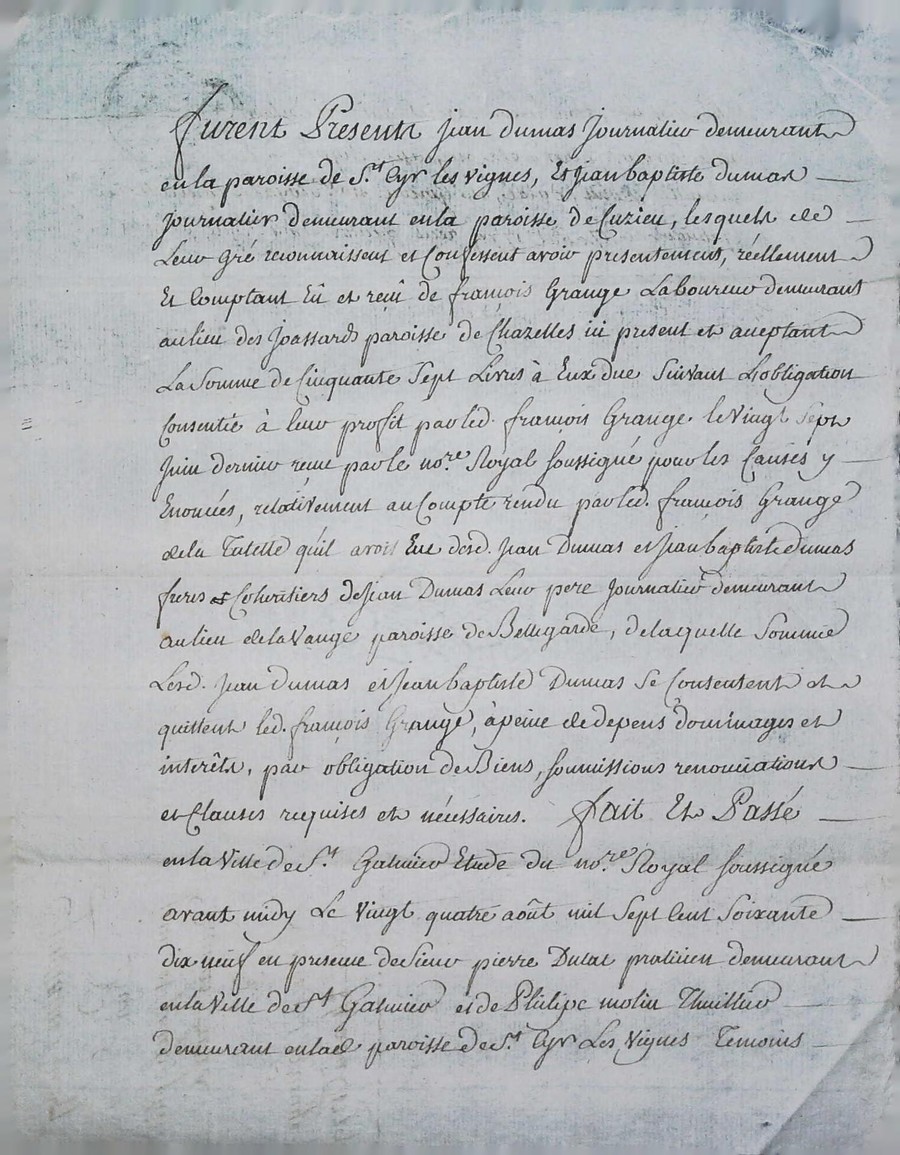 furent Presents jean dumas Journalier demeurant
en la paroisse de S.t Cyr les vignes, Et jean baptiste dumas
journalier demeurant en la paroisse de Cuzieu, lesquels de
Leur gré reconnaissent et Confessent avoir presentement, réellement
Et Comptant Eû et reçû de françois Grange Laboureur demeurant
au lieu des Joassards paroisse de Chazelles ici present et acceptant
La Somme de Cinquante Sept Livres à Eux due Suivant L'obligation
Consentie à leur profit par led. françois Grange le vingt Sept
Juin dernier reçue par le no.re Royal soussigné pour les Causes y
Enoncées, relativement au Compte rendu par led. françois Grange
de la Tutelle qu'il avoit Eue desd. Jean Dumas et jean baptiste dumas
freres et Coheritiers de jean Dumas Leur pere Journalier demeurant
au lieu de la Vauge paroisse de Bellegarde, de laquelle Somme
Lesd. jean dumas et jean baptiste Dumas Se Contentent et
quittent led. françois Grange, à peine de depens dommages et
interêts, par obligation de Biens, soumissions renonciations
et Clauses requises et nécessaires. fait Et Passé
en la Ville de S.t Galmier Etude du no.re Royal soussigné
avant midy Le Vingt quatre août mil Sept Cent Soixante
dix neuf en presence de Sieur pierre Dulac praticien demeurant
en la Ville de S.t Galmier et de Philipe molin Thuillier
demeurant en lad paroisse de S.t Cyr Les Vignes Temoins